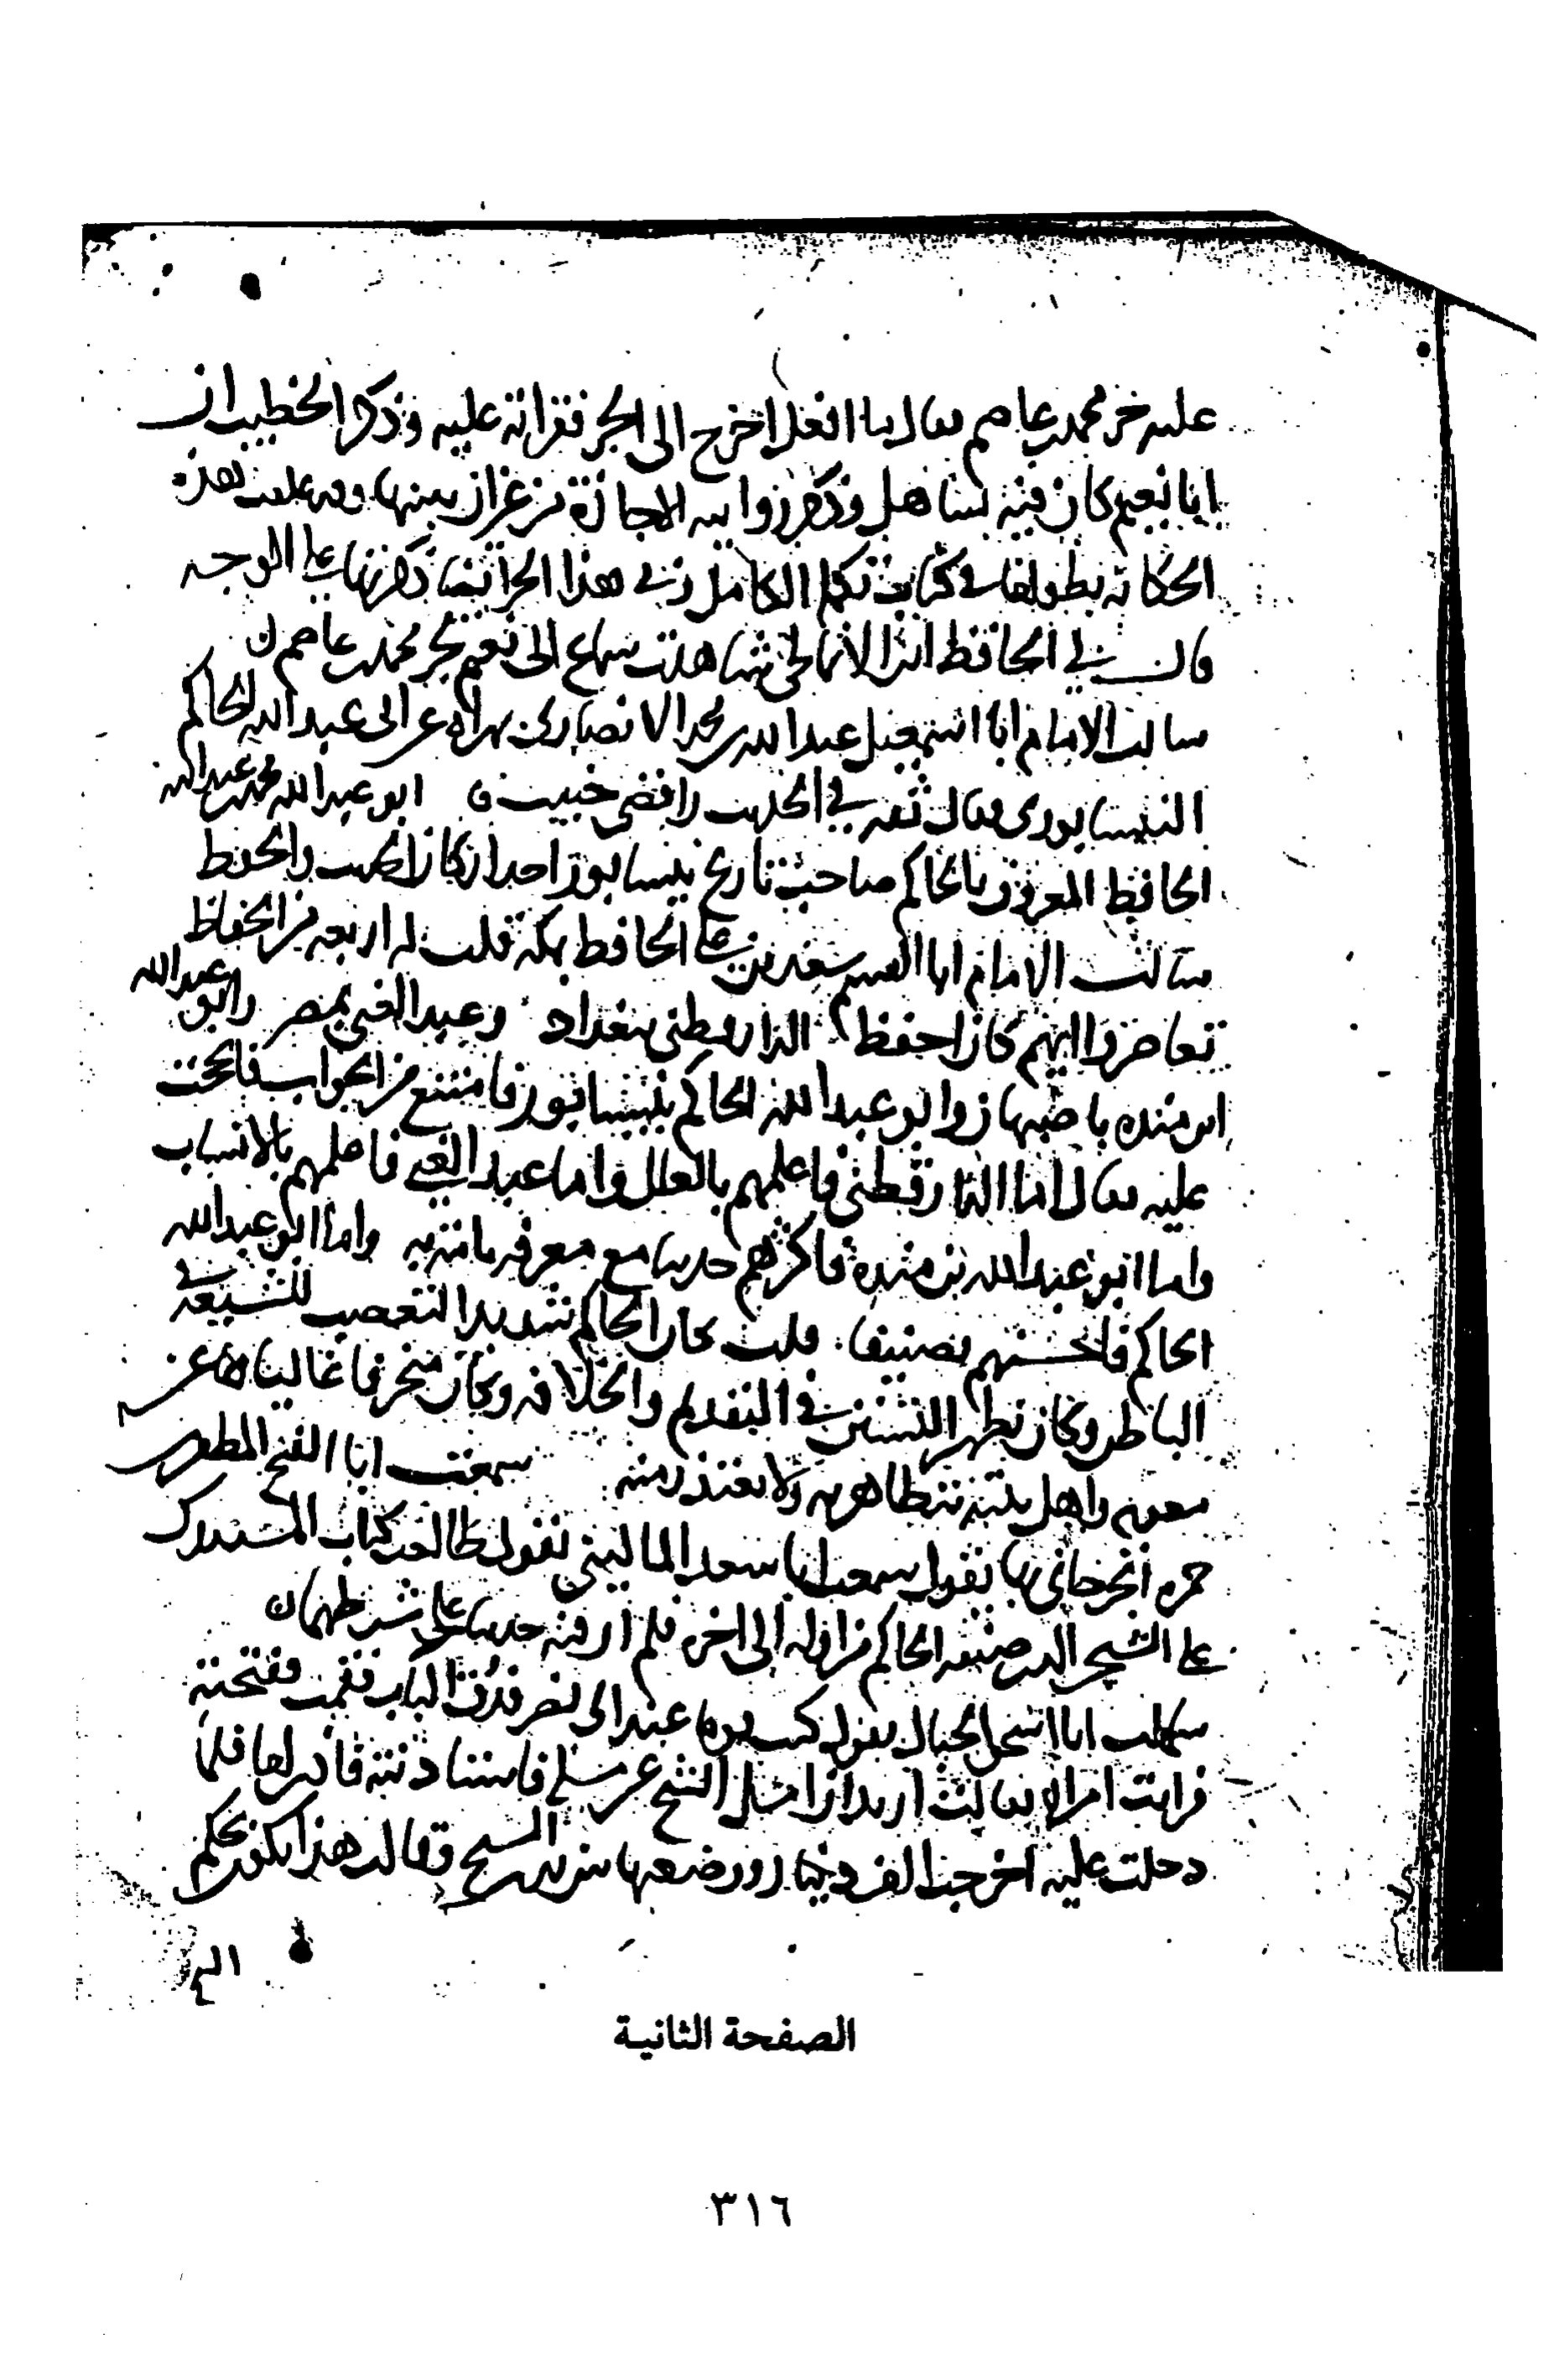 عليه جزء محمد بن عاصم فقال يا ابا نعيم اخرج الى الجزء فقرأته عليه وذكر الخطيب ان
ابا نعيم كان فيه تساهل وذكر روايته الاجازة من غير ان يبينها وقد علقت هذه
الحكاية بطولها في كتاب تكملة الكامل هذا الجزء ذكرتها على الوجه
قال لي الحافظ ابن الانماطي شاهدت سماع ابي نعيم بجزء محمد بن عاصم
سالت الامام ابا اسمعيل عبد الله بن محمد الانصاري بهراة عن ابي عبد الله الحاكم
النيسابوري فقال ثقه في الحديث رافضي خبيث ابو عبد الله محمد بن عبد الله
الحافظ المعروف بالحاكم صاحب تاريخ نيسابور احد اركان الحديث والحفظ
سالت الامام ابا القسم سعد بن علي الحافظ بمكة قلت له اربعه من الحفاظ
تعاصروا ايهم كان احفظ الدارقطني ببغداد وعبد الغني بمصر وابو عبد الله
ابن منده باصبهان وابو عبد الله الحاكم بنيسابور فامتنع من الجواب فالححت
عليه فقال اما الدارقطني فاعلمهم بالعلل واما عبد الغني فاعلمهم بالانساب
واما ابو عبد الله بن منده فاكثرهم حديثا مع معرفه تامة به واما ابو عبد الله
الحاكم فاحسنهم تصنيفا قلت كان الحاكم شديد التعصب للشيعة في
الباطن وكان يظهر التسنن في التقديم والخلافه وكان منحرفا غاليا عن
معويه واهل بيته يتظاهر به ولا يعتذر منه سمعت ابا الفتح المطهر بن
حمزه الجرجاني بها يقول سمعت ابا سعد الماليني يقول طالعت كتاب المستدرك
على الشيخين الذي صنفه الحاكم من اوله الى اخره فلم ار فيه حديثا على شرطهما
سمعت ابا اسحق الحبال يقول كنت يوما عند ابي نصر فدق الباب فقمت ففتحته
فرايت امراة فقالت اريد ان اسال الشيخ عن شيء فاستاذنته فاذن لها فلما
دخلت عليه اخرجت الف دينار ووضعتها بين يدي الشيخ وقالت هذا يكون بحكم
الصفحة الثانية
٣١٦